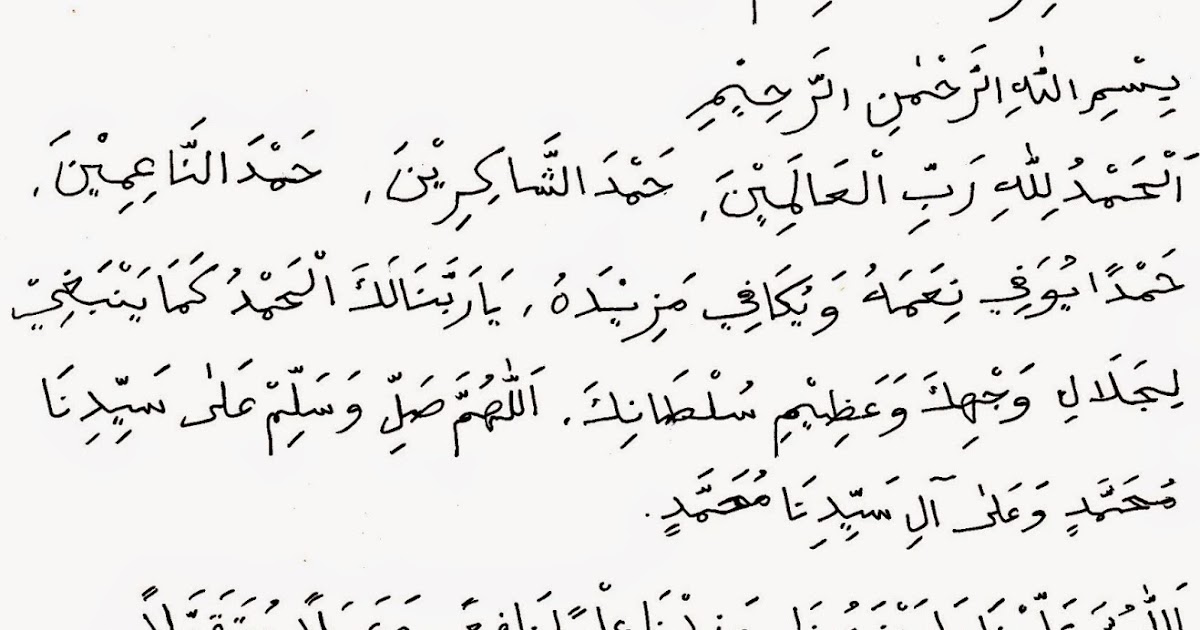 بِسْمِ اللهِ الرَّحْمٰنِ الرَّحِيْمِ
اَلْحَمْدُ لِلّٰهِ رَبِّ الْعَالَمِيْنَ، حَمْدَ الشَّاكِرِيْنَ، حَمْدَ النَّاعِمِيْنَ،
حَمْدًا يُوَفِي نِعَمَهُ وَيُكَافِي مَزِيْدَهُ، يَا رَبَّنَا لَكَ الْحَمْدُ كَمَا يَنْبَغِيْ
لِجَلَالِ وَجْهِكَ وَعَظِيْمِ سُلْطَانِكَ. اَللّٰهُمَّ صَلِّ وَسَلِّمْ عَلٰى سَيِّدِنَا
مُحَمَّدٍ وَعَلٰى آلِ سَيِّدِنَا مُحَمَّدٍ.